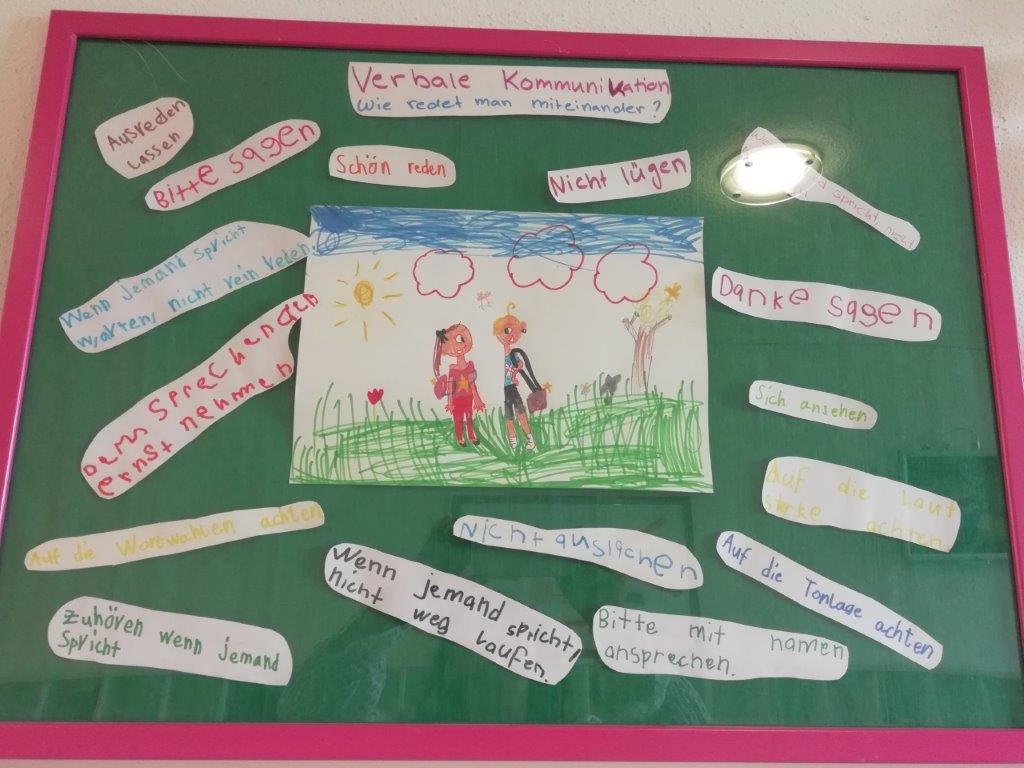 Verbale Kommunikation
Wie redet man miteinander?
Ausreden
lassen
Bitte sagen
Schön reden
Nicht lügen
spricht, nicht
Wenn jemand spricht
warten, nicht rein reden.
Danke sagen
Dem sprechenden
ernst nehmen
Sich ansehen
Auf die Laut
sterke achten
Auf die Wortwahlen achten
Nicht auslachen
Auf die Tonlage achten
Wenn jemand spricht,
nicht weg laufen.
Zuhören wenn jemand
Spricht
Bitte mit namen
ansprechen.